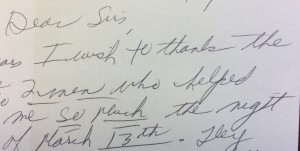 Dear Sirs,
I wish to thank the
2 men who helped
me so much the night
of March 13th. They